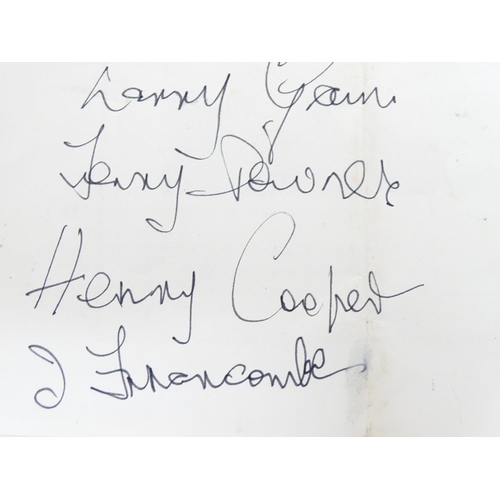 Larry Gains
Terry Downes
Henry Cooper
J Francombe